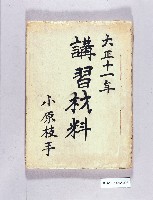 大正十一年
講習材料
小原枝手